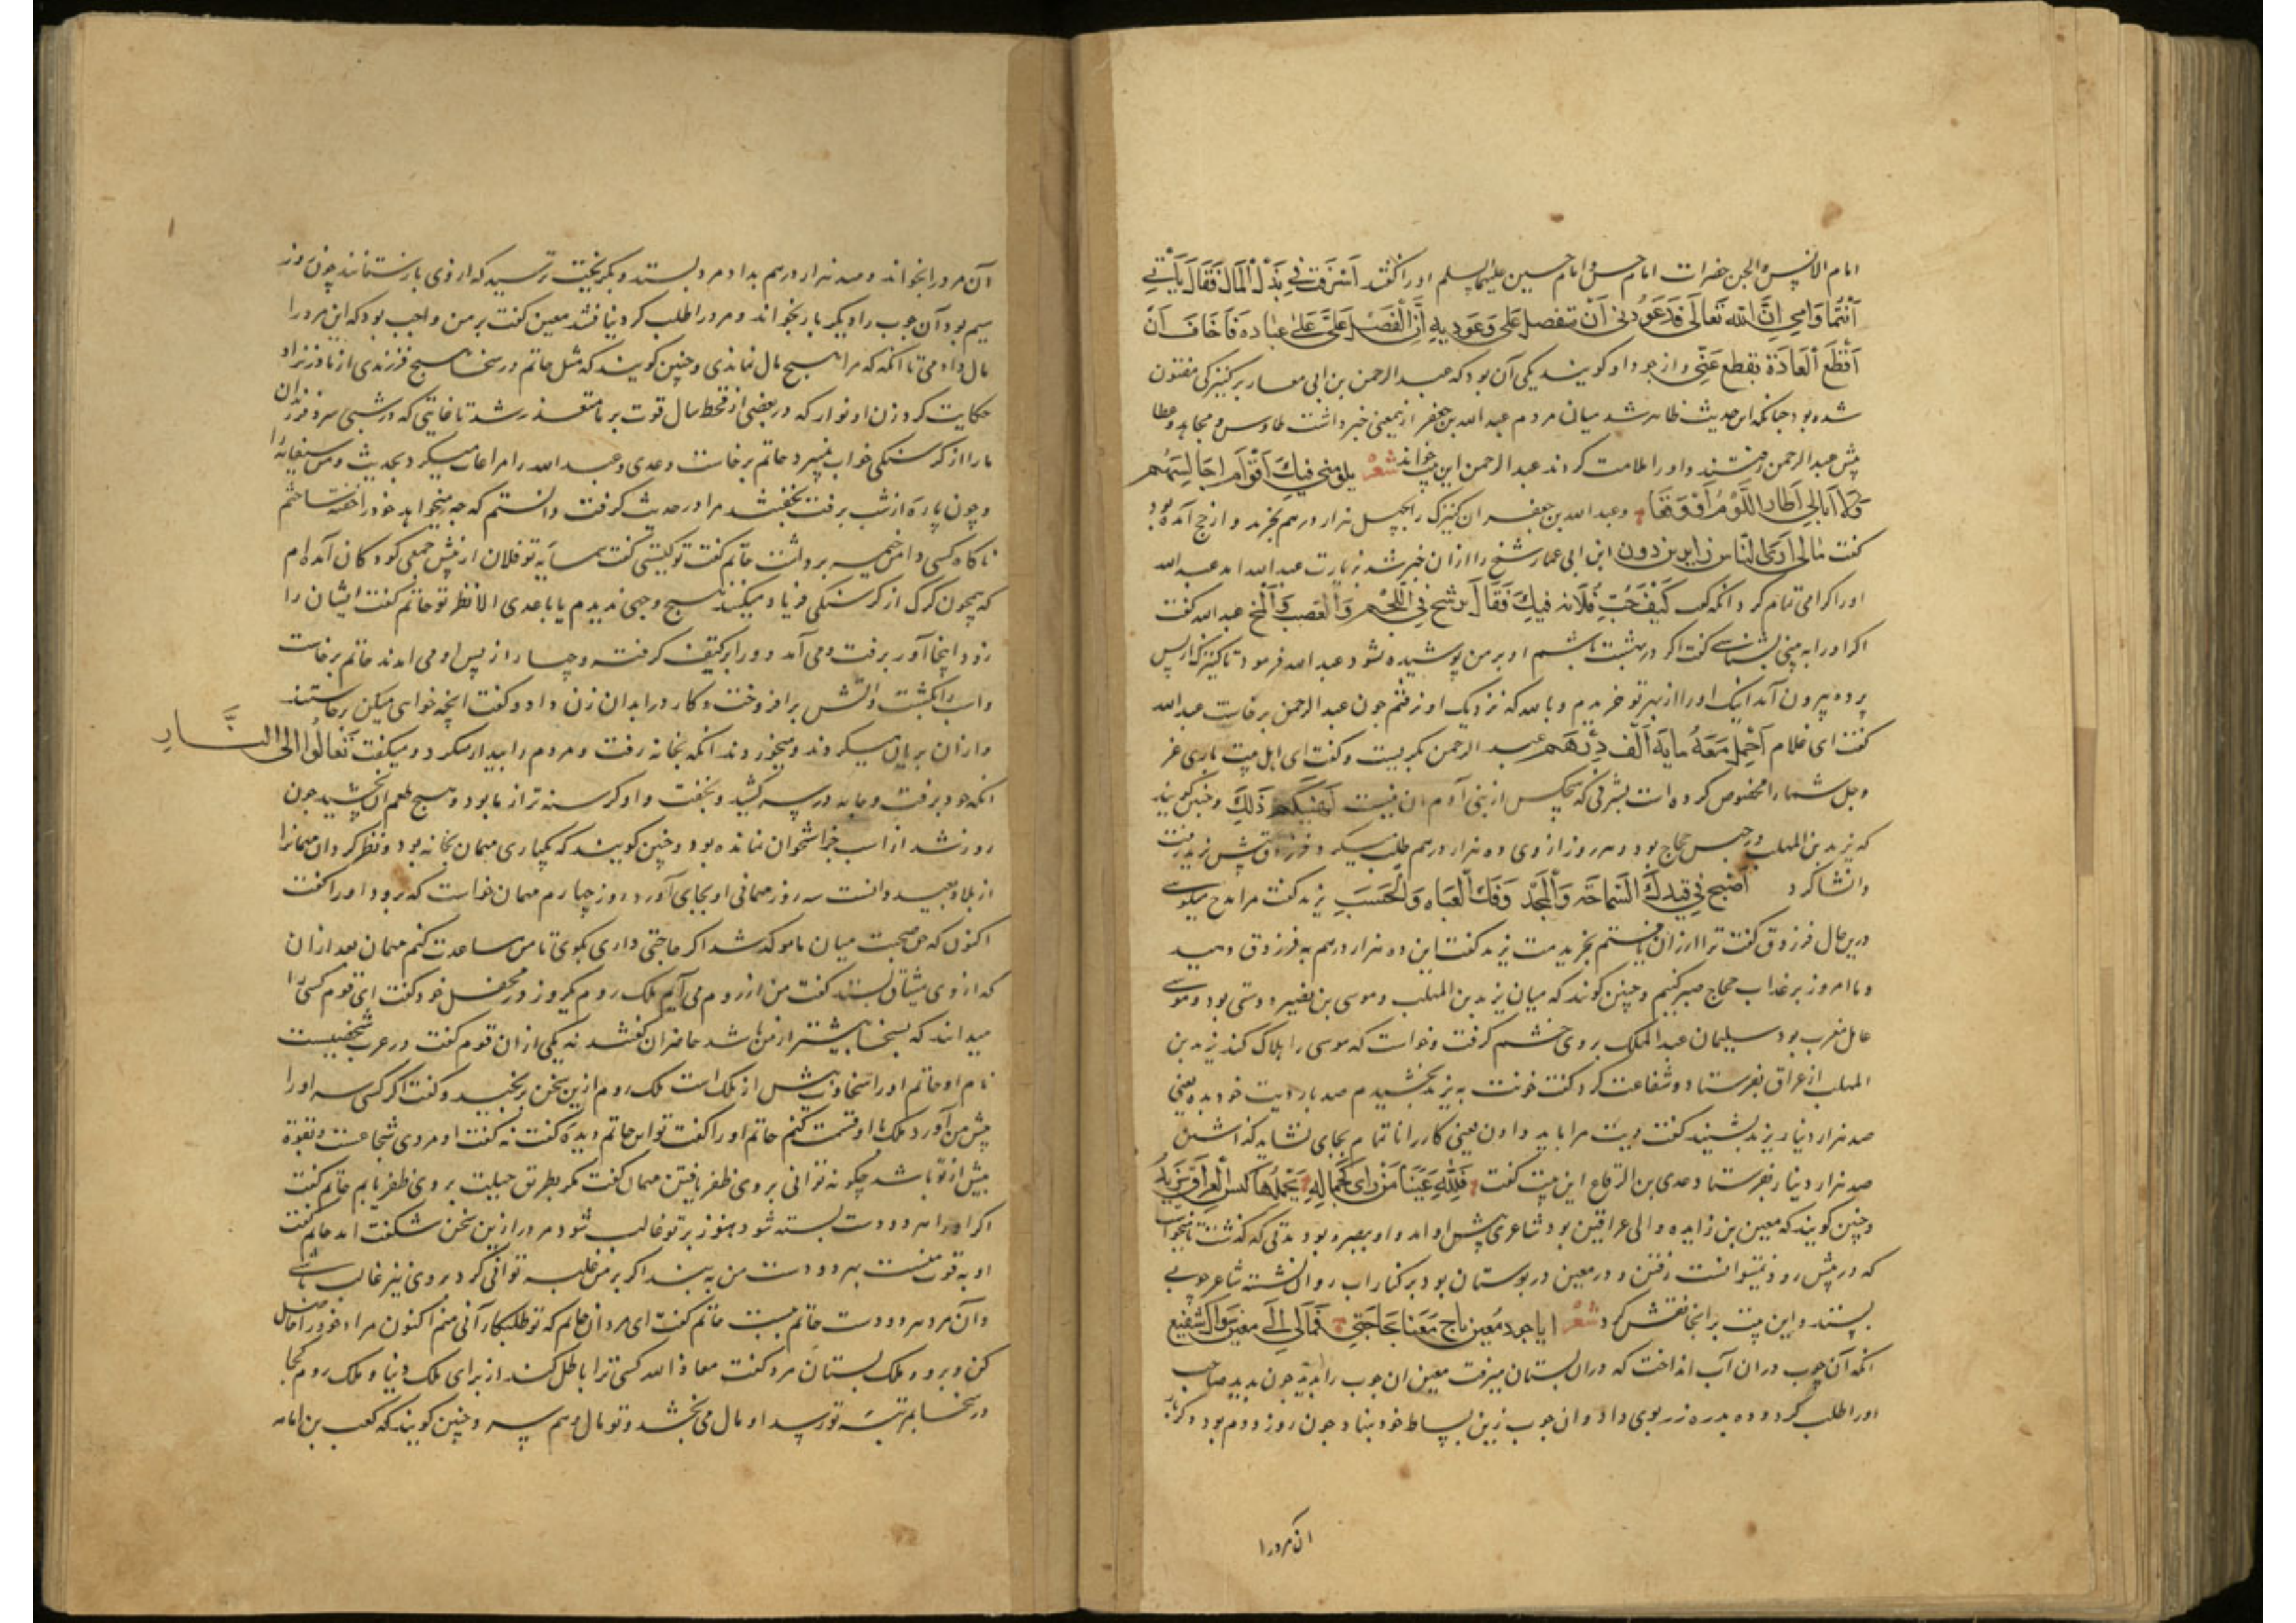 امام الانس والجن حضرات امام حسن و امام حسین علیهما السلم اورا گفتند اَسْرَفتَ فِی بَذْلِ الْمَالِ فَقَالَ بِاَبِی
اَنْتُمَا وَاُمِی اِنَّ اللّه تَعَالَی قَدعَوَّدنی اَنْ یتفضل عَلَی وَعَودته اَنْ اَفْضِلَ عَلَی عِبَادِه فَاَخَافُ اَنْ
اَقْطَعَ الْعَادَة فیقطع عَنِّی و از جود او کویند یکی آن بود که عبد الرحمن بن ابی عمار بر کنیزکی مفتون
شده بود چنانکه این حدیث ظاهر شد میان مردم عبد الله بن جعفر ازین معنی خبر داشت طاوس و مجاهد و عطا
پیش عبد الرحمن رفتند و اورا ملامت کردند عبد الرحمن این بیت خواند شعر یلومنی فِیكَ اَقْوَام اُجَالِسُهُم
وَمَا اُبَالِی اَطَار اللَّوْمُ اَوْ وَقَعَا و عبد الله بن جعفر ان کنیزک را بچهل هزار درهم بخرید و از حج آمده بود
گفت مَالی اَرَی النَّاس زَایرین دون ابن ابی عمار شیخ را ازان خبر شد بزیارت عبد الله امد عبد الله
اورا کرامی تمام کرد انکه گفت کَیْفَ حُبُّ فُلَانه فِیكَ فَقَالَ یرسخ فِی اللَّحْمِ وَالعَصَبِ وَالْمُخ عبد الله گفت
اگر اورا به بینی بشناسی گفت اگر در بهشت باشم او بر من پوشیده نشود عبد الله فرمود تا کنیزک از پس
پرده بیرون آمد اینک اورا از بهر تو خریدم و بالله که نزدیک او نرفتم چون عبد الرحمن برخاست عبد الله
گفت ای غلام اَحْمِل مَعَهُ مایَة اَلْف دِرْهَم عبد الرحمن بگریست و گفت ای اهل بیت باری عز
و جل شما را مخصوص کرده است بشرفی که هیچکس از بنی آدم ان نیست لِیَهْنِکُم ذَلِكَ و چنین کویند
که یزید بن المهلب در حبس حجاج بود و هر روز از وی ده هزار درهم طلب میکرد فرزدق پیش یزید رفت
وانشا کرد اَصْبَحَ فِی قَیدِكَ السَّمَاحَة وَالْمَجْد وَفَكّ الْعُنَاه وَالْحَسَبِ یزید گفت مرا مدح میکویی
درین حال فرزدق گفت ترا ارزان یافتم بخریدمت یزید گفت این ده هزار درهم به فرزدق دهید
و ما امروز بر عذاب حجاج صبر کنیم و چنین کویند که میان یزید بن المهلب و موسی بن نصیر دوستی بود و موسی
عامل مغرب بود سلیمان عبد الملک بر وی خشم گرفت و خواست که موسی را هلاک کند یزید بن
المهلب از عراق بفرستاد و شفاعت کرد گفت خونت به یزید بخشیدم صد بار دیت خود بده یعنی
صد هزار دینار یزید بشنید گفت دیت مرا باید دادن یعنی کار را ناتمام بجای نشاید گذاشتن
صد هزار دینار بفرستاد عدی بن الرقاع این بیت گفت فَلِلّهِ عَیْنَا مَنْ رَای کَحَمَالَه تَحَمَّلَهَا کَبْشُ الْعِرَاقِ یَزِیدُ
و چنین کویند که معین بن زایده والی عراقین بود شاعری پیش او امد و او ببصره بود مدتی که گذشت
که در پیش رود نمیتوانست رفتن و در معین در بوستان بود بر کنار اب روان نشسته شاعر چوبی
بستد و این بیت بر انجا نقش کرد شعر ایا جود مُعین نَاج مَعنًا بِحَاجَتِی فَمَالی اِلَی معین سِوَاكَ شَفِیع
انکه آن چوب دران آب انداخت که دران بستان میرفت معین ان چوب را بدید چون بدید صاحب
اورا طلب کرد و ده بدره زر بوی داد و ان چوب زیر بساط خود بنهاد چون روز دوم بود دکر بار
ان مرد را
آن مرد را بخواند و صد هزار درهم بداد مرد بستد و بگریخت ترسید که از وی باز ستانند چون روز
سیم بود آن چوب را دیگر بار بخواند و مرد را طلب کرد نیافتند معین گفت بر من واجب بود که این مرد را
مال دادمی تا انکه که مرا هیچ مال نماندی و چنین کویند که مثل حاتم در سخا هیچ فرزندی از مادر نزاد
حکایت کرد زن او نوار که در بعضی از قحط سال قوت بر ما متعذر شد تا غایتی که در شبی سه فرزندان
مارا از گرسنگی خواب نمیبرد حاتم برخاست و عدی و عبد الله را مراعات میکرد بحدیث و من سفانه را
و چون پاره از شب برفت بخفتند مرا در حدیث گرفت دانستم که چه میخواهد خود را خفته ساختم
ناگاه کسی دامن خیمه برداشت حاتم گفت تو کیستی گفت همسایه تو فلان از پیش جمعی کودکان آمده ام
که همچون گرگ از گرسنگی فریاد میکنند هیچ وجهی ندیدم یا باعدی الا نظر تو حاتم گفت ایشان را
زود اینجا آور برفت و می آمد دو را بر کتف گرفته و چهار از پس او می امدند حاتم برخاست
و اسب را بکشت و اتش برافروخت و کارد را بدان زن داد و گفت انچه خواهی میکن برخاستند
و ازان بریان میکردند و میخوردند انکه بخانه رفت و مردم را بیدار میکرد و میگفت تَعَالَوُا اِلَی النَّارِ
انکه خود برفت و جامه در سر کشید و بخفت و او گرسنه تر از ما بود و هیچ طعم ان نچشید چون
روز شد از اسب جز استخوان نمانده بود و چنین کویند که یکباری مهمان بخانه بود و نظر کرد ان مهمانرا
از بلاد بعید دانست سه روز مهمانی او بجای آورد روز چهارم مهمان خواست که برود اورا گفت
اکنون که حق صحبت میان ما موکد شد اگر حاجتی داری بکوی تا من مساعدت کنم مهمان بعد ازان
که از وی میثاق بستد گفت من از روم می آیم ملک روم یکروز در محفل خود گفت ای قوم کسی را
میدانند که بسخا بیشتر از من باشد حاضران گفتند نه یکی ازان قوم گفت در عرب شخصیست
نام او حاتم اورا سخاوت بیش از ملک است ملک روم ازین سخن برنجید و گفت اگر کسی سر اورا
پیش من آورد ملک با او قسمت کنم حاتم اورا گفت تو این حاتم دیده گفت نه گفت او مردی شجاعست و بقوة
بیش از تو باشد چگونه توانی بر وی ظفر یافتن مهمان گفت مگر بطریق حیلت بر وی ظفر یابم حاتم گفت
اگر اورا هر دو دست بسته شود هنوز بر تو غالب شود مرد ازین سخن شگفت امد حاتم گفت
او به قوت منست هر دو دست من به بند اگر بر من غلبه توانی کرد بر وی نیز غالب باشی
و آن مرد هر دو دست حاتم ببست حاتم گفت ای مرد ان حاتم که تو طلبکار آنی منم اکنون مراد خود را حاصل
کن و برو و ملک بستان مرد گفت معاذ الله کسی ترا باطل کند از برای ملک دنیا و ملک روم کجا
در سخا بمرتبه تو رسد او مال می بخشد و تو مال و هم سر و چنین کویند که کعب بن امامه